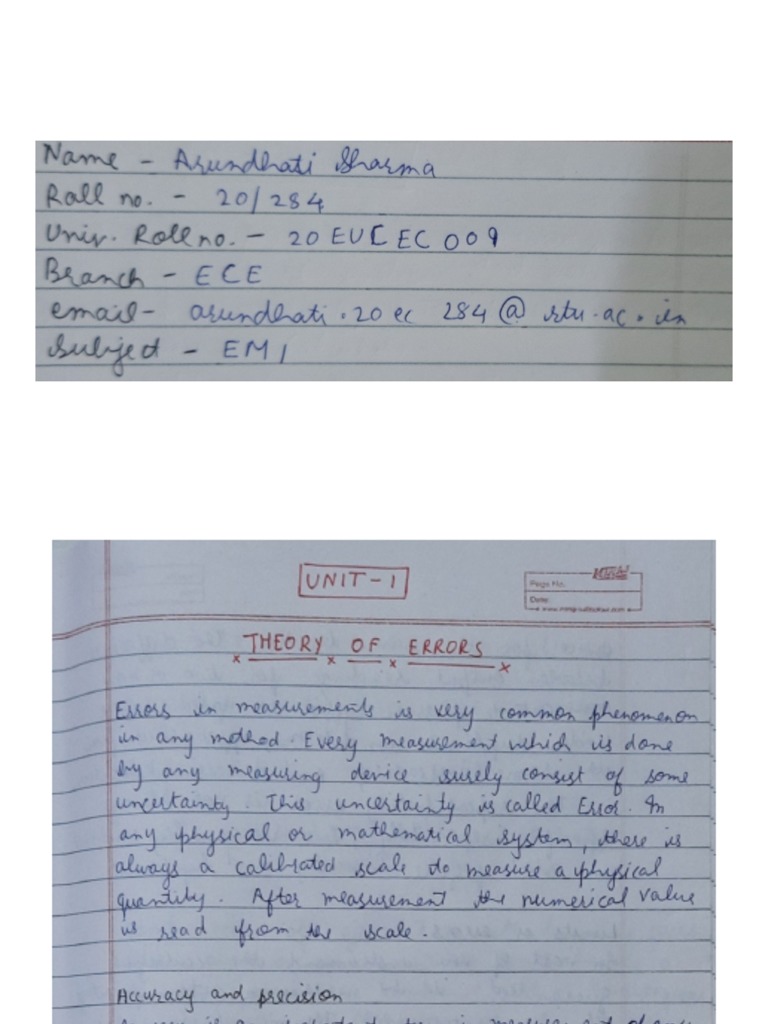 Name - Arundhati Sharma
Roll no. - 20/284
Univ. Roll no. - 20EUCEC009
Branch - ECE
email - arundhati.20ec284@rtu.ac.in
Subject - EMI
UNIT-1
Page No.
Date:
THEORY OF ERRORS
Errors in measurements is very common phenomenon
in any method. Every measurement which is done
by any measuring device surely consist of some
uncertainty. This uncertainty is called Error. In
any physical or mathematical system, there is
always a calibrated scale to measure a physical
quantity. After measurement the numerical value
is read from the scale.
Accuracy and precision